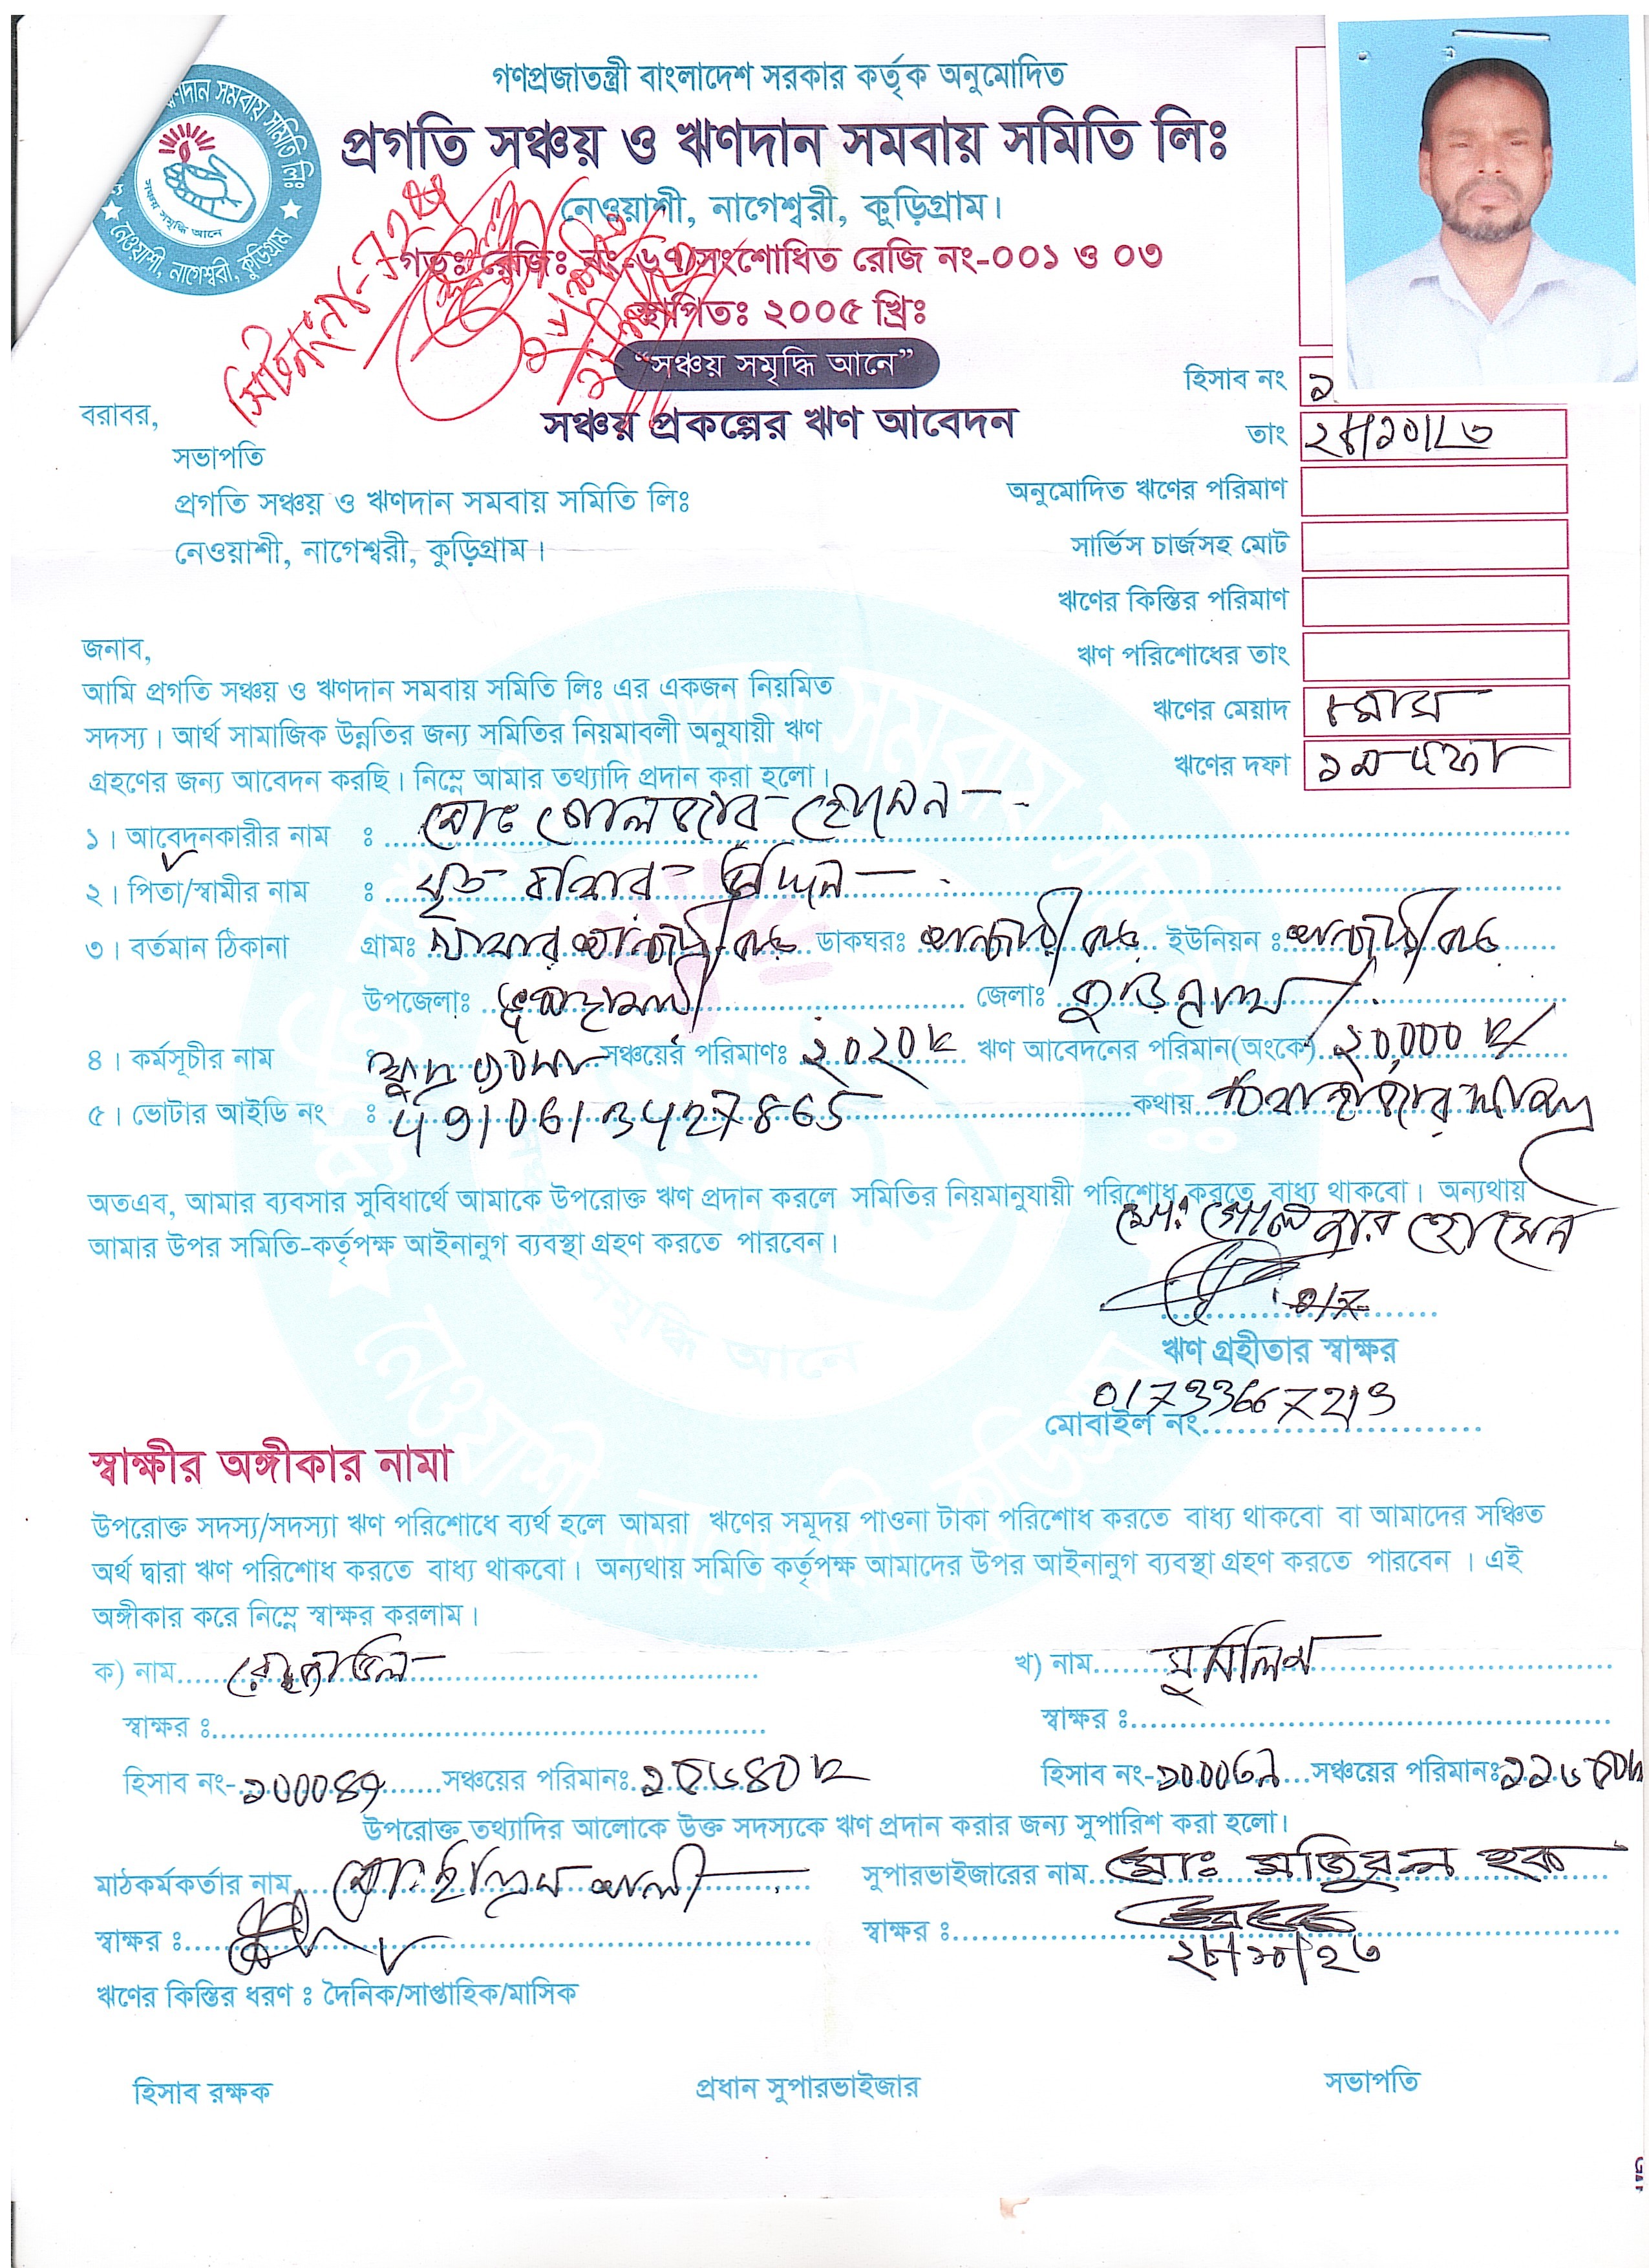 গণপ্রজাতন্ত্রী বাংলাদেশ সরকার কর্তৃক অনুমোদিত
প্রগতি সঞ্চয় ও ঋণদান সমবায় সমিতি লিঃ
নেওয়াশী, নাগেশ্বরী, কুড়িগ্রাম।
গভঃ রেজিঃ নং-৬৭/সংশোধিত রেজি নং-০০১ ও ০৩
স্থাপিতঃ ২০০৫ খ্রিঃ
“সঞ্চয় সমৃদ্ধি আনে”
সঞ্চয় প্রকল্পের ঋণ আবেদন
হিসাব নং ১
তাং ২৮/১০/২৩
অনুমোদিত ঋণের পরিমাণ
সার্ভিস চার্জসহ মোট
ঋণের কিস্তির পরিমাণ
ঋণ পরিশোধের তাং
ঋণের মেয়াদ
ঋণের দফা ১ম দফা
বরাবর,
সভাপতি
প্রগতি সঞ্চয় ও ঋণদান সমবায় সমিতি লিঃ
নেওয়াশী, নাগেশ্বরী, কুড়িগ্রাম।
জনাব,
আমি প্রগতি সঞ্চয় ও ঋণদান সমবায় সমিতি লিঃ এর একজন নিয়মিত
সদস্য। আর্থ সামাজিক উন্নতির জন্য সমিতির নিয়মাবলী অনুযায়ী ঋণ
গ্রহণের জন্য আবেদন করছি। নিম্নে আমার তথ্যাদি প্রদান করা হলো।
১। আবেদনকারীর নাম : মোঃ গোলজার হোসেন
২। পিতা/স্বামীর নাম : মৃত উদ্দিন
৩। বর্তমান ঠিকানা গ্রামঃ ডাকঘরঃ ইউনিয়ন :
উপজেলাঃ জেলাঃ কুড়িগ্রাম
৪। কর্মসূচীর নাম : সঞ্চয়ের পরিমাণঃ ২০২০৳ ঋণ আবেদনের পরিমান(অংকে) ২০,০০০৳
৫। ভোটার আইডি নং : 4910613427865 কথায়
অতএব, আমার ব্যবসার সুবিধার্থে আমাকে উপরোক্ত ঋণ প্রদান করলে সমিতির নিয়মানুযায়ী পরিশোধ করতে বাধ্য থাকবো। অন্যথায়
আমার উপর সমিতি-কর্তৃপক্ষ আইনানুগ ব্যবস্থা গ্রহণ করতে পারবেন।
মোঃ গোলজার হোসেন
ঋণ গ্রহীতার স্বাক্ষর
মোবাইল নং 01733667219
স্বাক্ষীর অঙ্গীকার নামা
উপরোক্ত সদস্য/সদস্যা ঋণ পরিশোধে ব্যর্থ হলে আমরা ঋণের সমূদয় পাওনা টাকা পরিশোধ করতে বাধ্য থাকবো বা আমাদের সঞ্চিত
অর্থ দ্বারা ঋণ পরিশোধ করতে বাধ্য থাকবো। অন্যথায় সমিতি কর্তৃপক্ষ আমাদের উপর আইনানুগ ব্যবস্থা গ্রহণ করতে পারবেন । এই
অঙ্গীকার করে নিম্নে স্বাক্ষর করলাম।
ক) নাম খ) নাম
স্বাক্ষর : স্বাক্ষর :
হিসাব নং- সঞ্চয়ের পরিমানঃ হিসাব নং- সঞ্চয়ের পরিমানঃ
উপরোক্ত তথ্যাদির আলোকে উক্ত সদস্যকে ঋণ প্রদান করার জন্য সুপারিশ করা হলো।
মাঠকর্মকর্তার নাম মোঃ আলী সুপারভাইজারের নাম মোঃ মতিবুল হক
স্বাক্ষর : স্বাক্ষর :
২৮/১০/২৩
ঋণের কিস্তির ধরণ : দৈনিক/সাপ্তাহিক/মাসিক
হিসাব রক্ষক প্রধান সুপারভাইজার সভাপতি